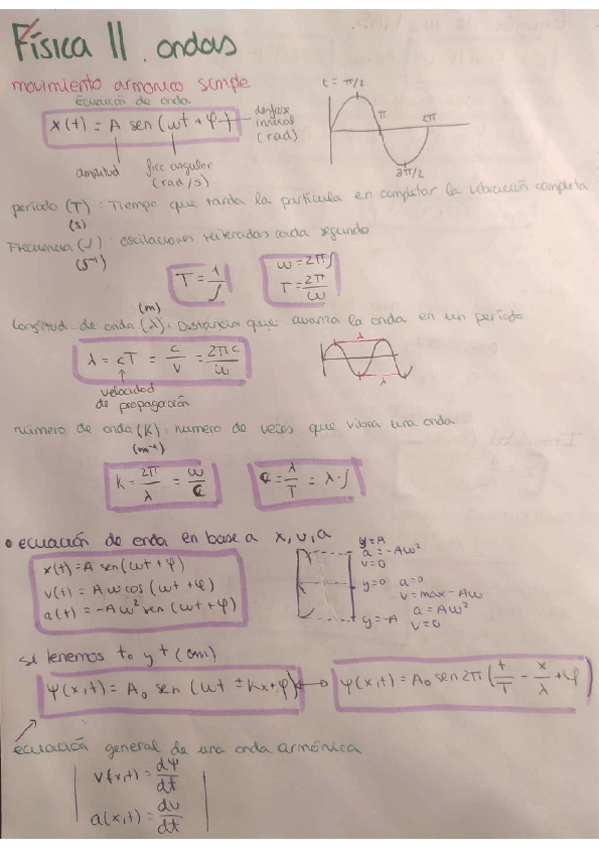 Física II. ondas
movimiento armonico simple
Ecuación de onda
x(t) = A sen(ωt + φ)
desfase inicial (rad)
amplitud
frec. angular (rad/s)
t = π/2
π
2π
3π/2
período (T): Tiempo que tarda la partícula en completar la vibración completa
(s)
Frecuencia (f): oscilaciones reiteradas cada segundo
(s⁻¹)
T = 1/f
ω = 2πf
T = 2π/ω
(m)
Longitud de onda (λ): Distancia que avanza la onda en un período
λ = cT = c/ν = 2πc/ω
velocidad
de propagación
λ
λ
número de onda (K): numero de veces que vibra una onda
(m⁻¹)
K = 2π/λ = ω/c
c = λ/T = λ·f
• ecuación de onda en base a x, v, a
x(t) = A sen(ωt + φ)
v(t) = A ω cos(ωt + φ)
a(t) = -A ω² sen(ωt + φ)
y = A
a = -Aω²
v = 0
y = 0 a = 0
v = max - Aω
a = Aω²
y = -A v = 0
si tenemos to y t (cm)
Ψ(x,t) = A₀ sen(ωt ± Kx + φ) ↔ Ψ(x,t) = A₀ sen 2π(t/T - x/λ + φ)
ecuación general de una onda armónica
v(x,t) = dΨ/dt
a(x,t) = dv/dt